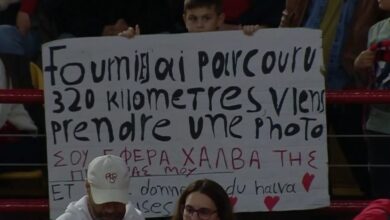 Fourni j'ai parcouru
320 kilometres viens
prendre une photo
ΣΟΥ ΕΦΕΡΑ ΧΑΛΒΑ ΤΗΣ
ET donne du halva